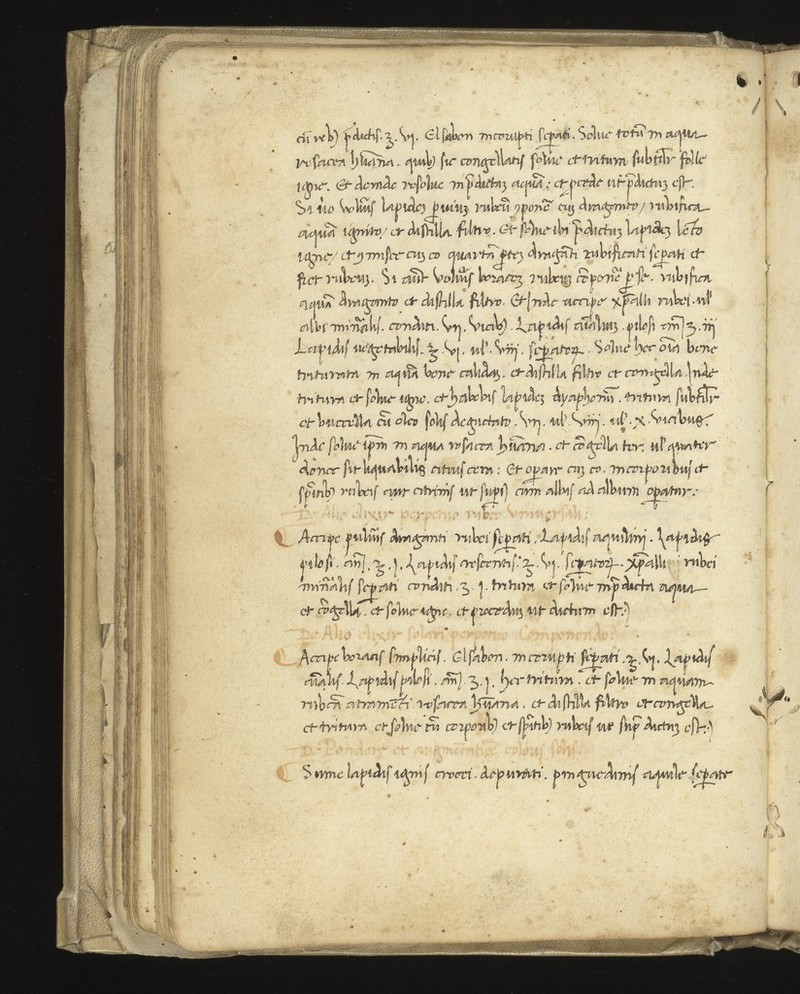 cū reb) p̄dictis. ʒ. vj. Elsaben incorupti sep̱ati. Solue totū in aqua
resacea hūana. quib) sic congellatis solue et tritum subtilr̄ solle
igne. Et deinde resolue in p̄dictaʒ aquā: et p̱cede ut p̄dictum est.
Si ūo volūis lapideʒ p̱uiuʒ rubeū ꝯponē cuʒ draganto / rubifica
aquā ignito / et distilla filtro. Et solue ibi p̄dictum lapideʒ lēto
igne / et ꝯmisce cuʒ eo quartā p̱teʒ dragāti rubificati sep̱ati et
fiet rubeuʒ. Si aūt volūis boraceʒ rubeuʒ cōponē p̱ se. rubifica
aquā draganto et distilla filtro. Et Inde accipe xp̄alli rubei. ul̄
albi minālis. conditi. vij. vicib). Lapidis aīalium. pilosi an̄. ʒ. iij
Lapidis uegetabilis. ʒ. vj. ul̄. viij. sep̱atoꝝ. Solue hec oīa bene
triturata in aquā bene calidaʒ. et distilla filtro et congella. Inde
tritura et solue igne. et habebis lapideʒ dyaphonū. tritura subtilr̄
et buccella cū oleo solis deguttato. vij. ul̄. viij. ul̄. x. vicibus.
Inde solue ip̄m in aqua resacea hūana. et cōgella ter. ul̄ quater
donec sit liquabilis citius cera: Et operare cuʒ eo. in corporibus et
sp̄itib) rubeis aut citrinis ut sup̱) cum albis ad album op̱atur:
De Alio elixir perpenio rubeo vniuersali:
Accipe puluis draganti rubei sep̱ati. Lapidis aquilini. Lapidis
pilosi. an̄. ʒ. j. Lapidis crescentis. ʒ. vj. sep̱atoꝝ. xp̄alli rubei
minālis sep̱ati conditi. ʒ. j. tritura et solue in p̄dicta aqua
et cōgella. et solue igne. et procedas ut dictum est:)
De Alio elixir solari perpenio Componendo:
Accipe boracis simplicis. Elsaben. incorupti sep̱ati. ʒ. vj. Lapidis
aīalis. Lapidis pilosi. an̄. ʒ. j. hec tritura. et solue in aquam
rubeā atramēti resacea hūana. et distilla filtro et congella
et tritura et solue cū corporib) et sp̄itib) rubeis ut sup̱ dictuʒ est:)
De Pondere et augmētatione coloris solis.
Sume lapidis ignis crocei. depurati. pinguedinis aquile sep̱ate